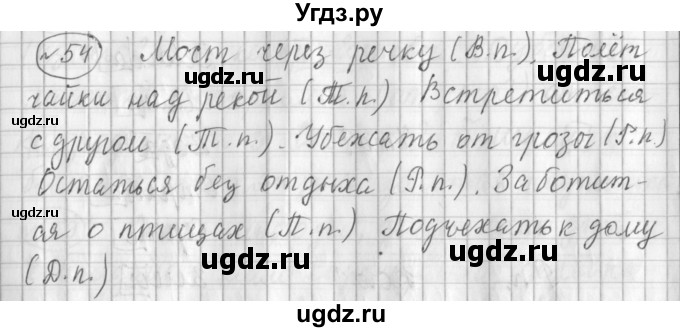 Угдз.ру
№54 Мост через речку (В.п.) Полёт
чайки над рекой (Т.п.) Встретиться
с другом (Т.п.). Убежать от грозы (Р.п.)
Остаться без отдыха (Р.п.). Заботит-
ся о птицах (П.п.) Подъехать к дому
(Д.п.)
ugdz.ru
ugdz.ru
ugdz.ru
ugdz.ru
ugdz.ru
ugdz.ru
ugdz.ru
ugdz.ru
ugdz.ru
ugdz.ru